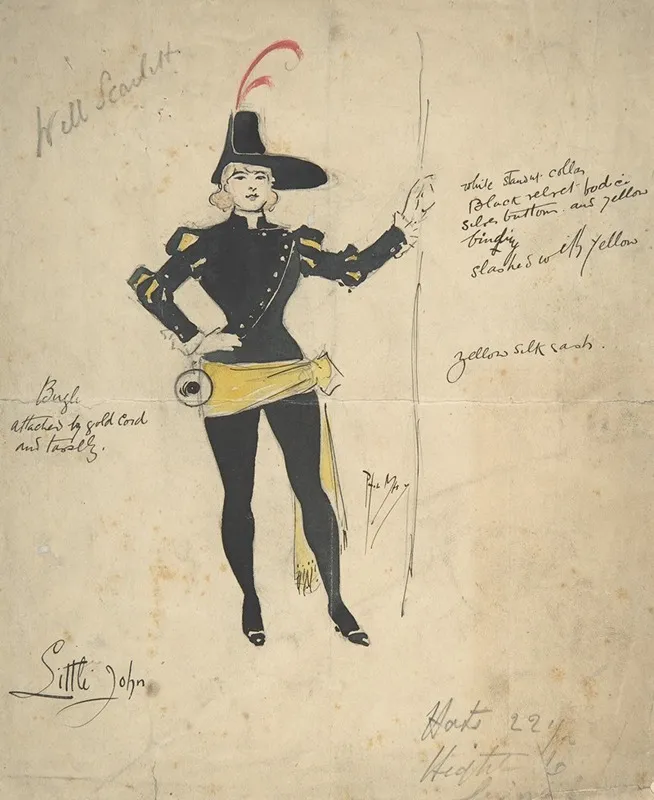 Will Scarlett
white standup collar
Black velvet bodice
silver buttons and yellow
binding
slashed with yellow
yellow silk sash.
Bugle
attached by gold cord
and tassels.
Phil May
Little John
Hats 22
Height 6